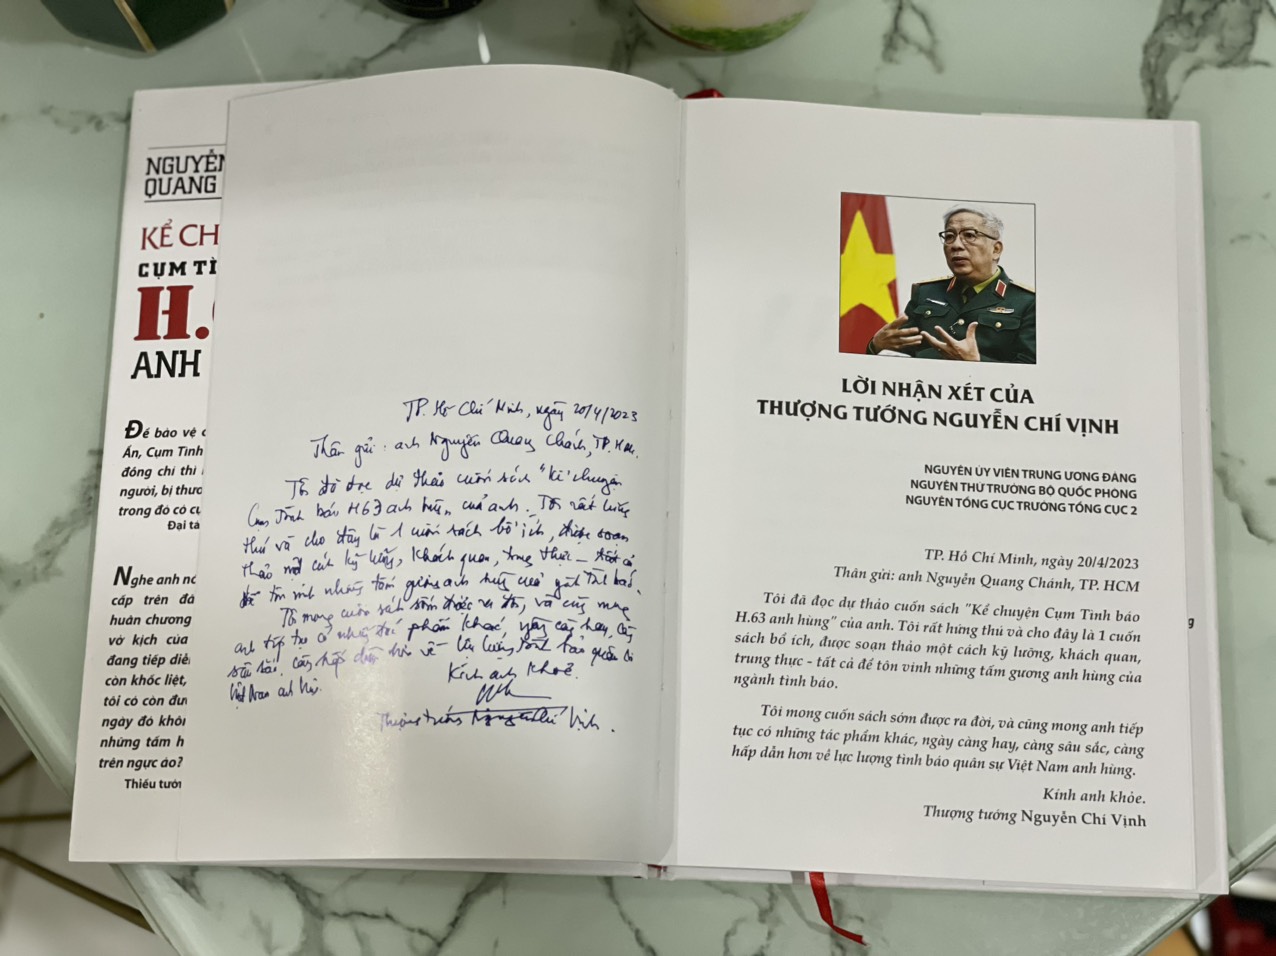 NGUYỄN
QUANG
KỂ CH
CỤM TÌ
H.
ANH
Để bảo vệ
Ấn, Cụm Tình
đồng chí thì
người, bị thươ
trong đó có cụ
Đại tá
Nghe anh nó
cấp trên đá
huân chương
vở kịch của
đang tiếp diễ
còn khốc liệt,
tôi có còn đư
ngày đó khôn
những tấm h
trên ngực áo?
Thiếu tướn
TP. Hồ Chí Minh, ngày 20/4/2023
Thân gửi: anh Nguyễn Quang Chánh, TP. HCM.
Tôi đã đọc dự thảo cuốn sách "Kể chuyện
Cụm Tình báo H63 anh hùng" của anh. Tôi rất hứng
thú và cho đây là 1 cuốn sách bổ ích, được soạn
thảo một cách kỹ lưỡng, khách quan, trung thực - tất cả
để tôn vinh những tấm gương anh hùng của ngành tình báo.
Tôi mong cuốn sách sớm được ra đời, và cũng mong
anh tiếp tục có những tác phẩm khác, ngày càng hay, càng
sâu sắc, càng hấp dẫn hơn về lực lượng tình báo quân sự
Việt Nam anh hùng.
Kính anh khỏe.
Thượng tướng Nguyễn Chí Vịnh.
LỜI NHẬN XÉT CỦA
THƯỢNG TƯỚNG NGUYỄN CHÍ VỊNH
NGUYÊN ỦY VIÊN TRUNG ƯƠNG ĐẢNG
NGUYÊN THỨ TRƯỞNG BỘ QUỐC PHÒNG
NGUYÊN TỔNG CỤC TRƯỞNG TỔNG CỤC 2
TP. Hồ Chí Minh, ngày 20/4/2023
Thân gửi: anh Nguyễn Quang Chánh, TP. HCM
Tôi đã đọc dự thảo cuốn sách "Kể chuyện Cụm Tình báo
H.63 anh hùng" của anh. Tôi rất hứng thú và cho đây là 1 cuốn
sách bổ ích, được soạn thảo một cách kỹ lưỡng, khách quan,
trung thực - tất cả để tôn vinh những tấm gương anh hùng của
ngành tình báo.
Tôi mong cuốn sách sớm được ra đời, và cũng mong anh tiếp
tục có những tác phẩm khác, ngày càng hay, càng sâu sắc, càng
hấp dẫn hơn về lực lượng tình báo quân sự Việt Nam anh hùng.
Kính anh khỏe.
Thượng tướng Nguyễn Chí Vịnh